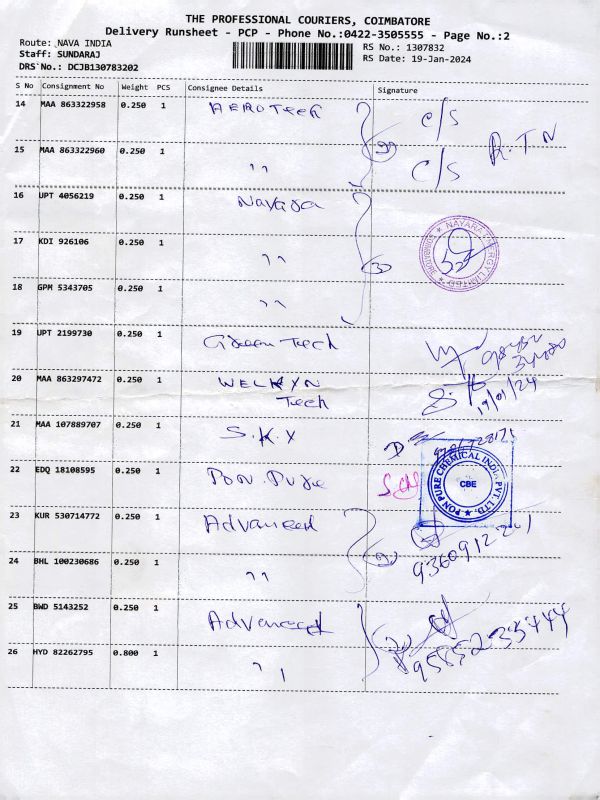 THE PROFESSIONAL COURIERS, COIMBATORE
Delivery Runsheet - PCP - Phone No.:0422-3505555 - Page No.:2
Route: NAVA INDIA
Staff: SUNDARAJ
DRS No.: DCJB130783202
RS No.: 1307832
RS Date: 19-Jan-2024
S No Consignment No Weight PCS Consignee Details Signature
14 MAA 863322958 0.250 1 AERO Teck c/s
R.T.N
15 MAA 863322960 0.250 1 " c/s
16 UPT 4056219 0.250 1 Nayara
NAYARA ENERGY LIMITED
17 KDI 926106 0.250 1 "
18 GPM 5343705 0.250 1 "
19 UPT 2199730 0.250 1 Green Tech
20 MAA 863297472 0.250 1 WELKYN Tech 19/01/24
21 MAA 107889707 0.250 1 S.K.X
22 EDQ 18108595 0.250 1 Pon. Pure
PON PURE CHEMICAL INDIA PVT. LTD.
CBE
23 KUR 530714772 0.250 1 Advanced
24 BHL 100230686 0.250 1 "
25 BWD 5143252 0.250 1 Advanced
9585233744
26 HYD 82262795 0.800 1 "